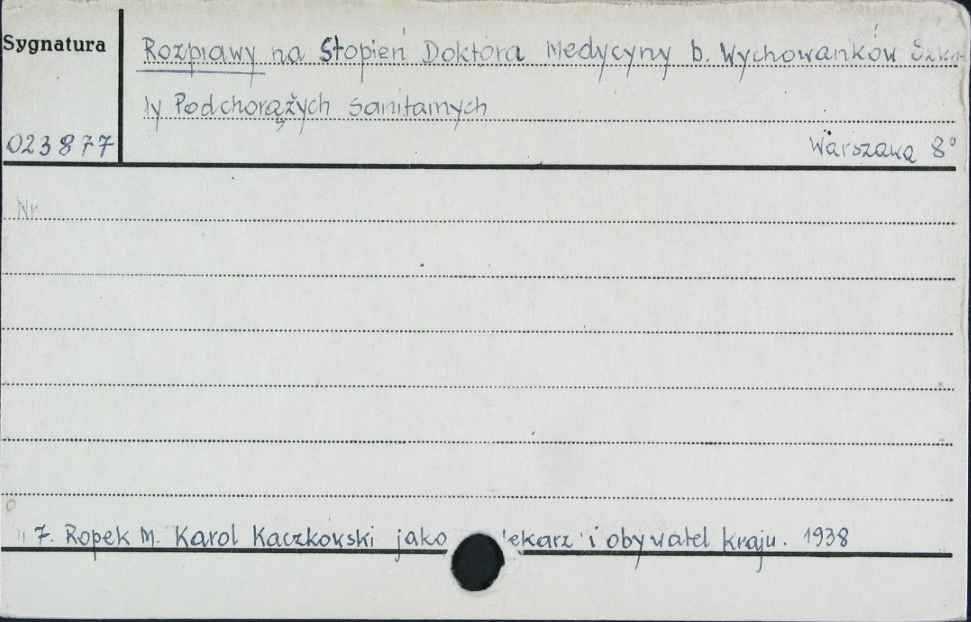 Sygnatura
Rozprawy na Stopień Doktora Medycyny b. Wychowanków Szko-
ły Podchorążych Sanitarnych
023877
Warszawa 8°
Nr
7. Ropek M. Karol Kaczkowski jako lekarz i obywatel kraju. 1938